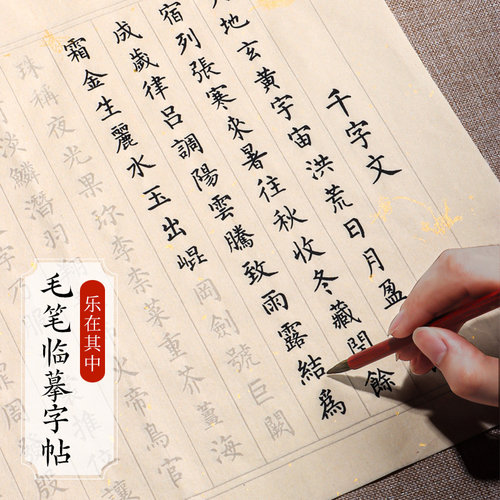 千字文
地玄黃宇宙洪荒日月盈
宿列張寒來暑往秋收冬藏閏餘
成歲律呂調陽雲騰致雨露結爲
霜金生麗水玉出崐岡劍號巨闕
珠稱夜光果珎李柰菜重芥薑海
淡鱗潛羽翔火帝鳥官
字乃推位讓
罪周發殷
乐在其中
毛笔临摹字帖